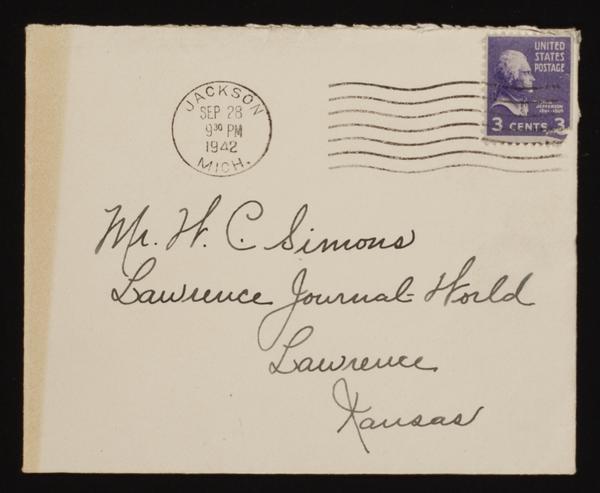 UNITED
STATES
POSTAGE
JEFFERSON
3 CENTS 3
JACKSON
SEP 28
9 30 PM
1942
MICH.
Mr. W. C. Simons
Lawrence Journal-World
Lawrence
Kansas